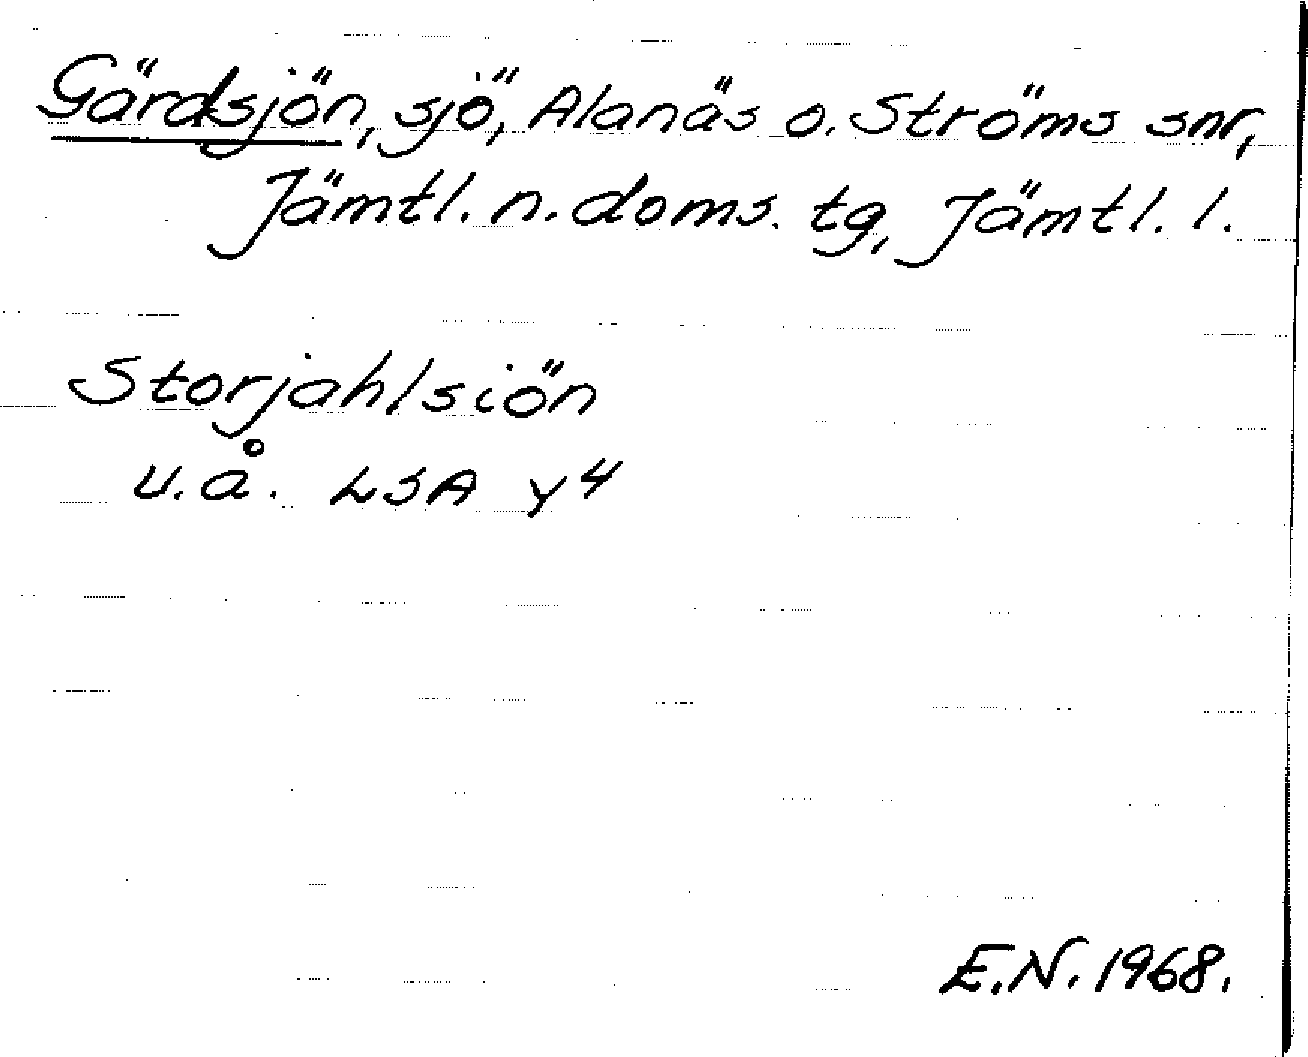 Gärdsjön, sjö, Alanäs o. Ströms snr,
Jämtl. n. doms. tg, Jämtl. l.
Storjahlsiön
u.å. LSA Y4
E.N. 1968.